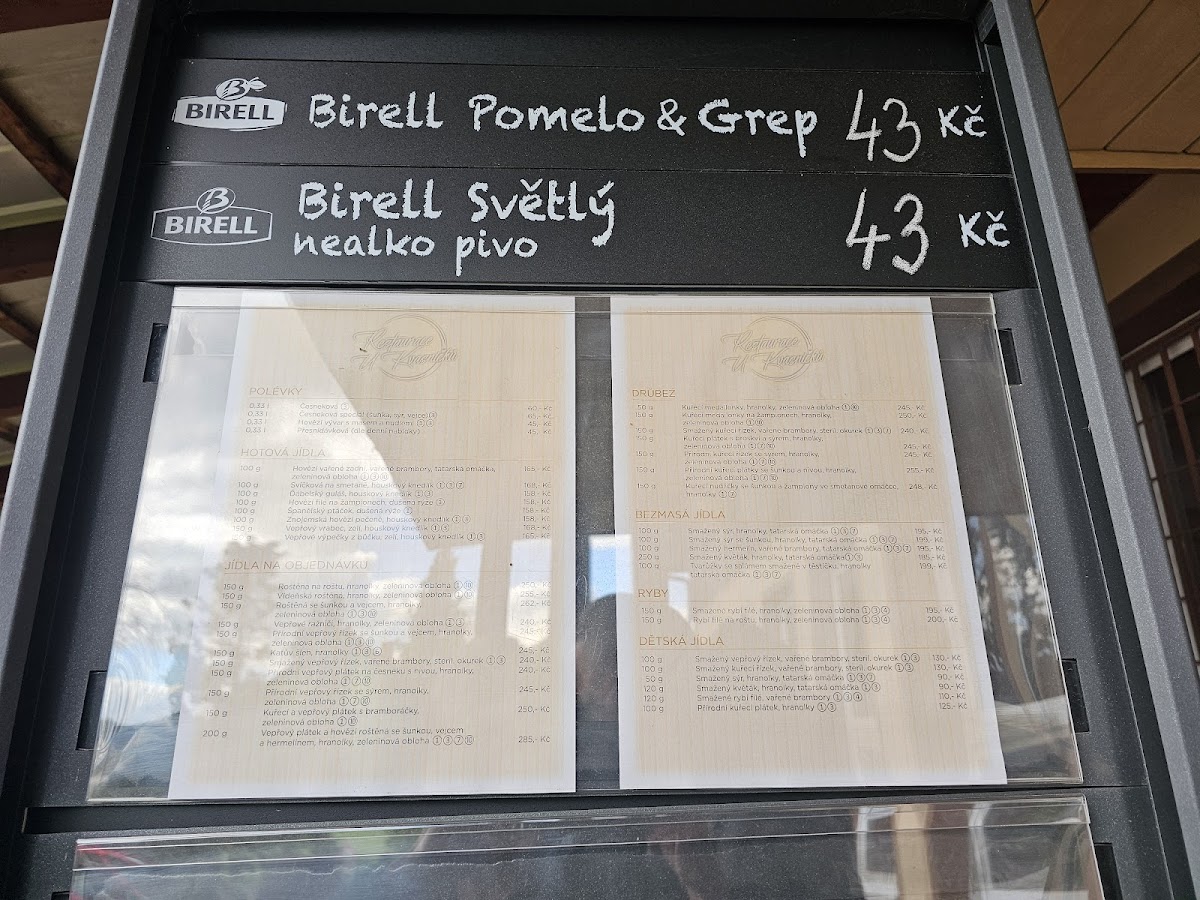 BIRELL Birell Pomelo & Grep 43 Kč
BIRELL Birell Světlý 43 Kč
nealko pivo
Restaurace
POLÉVKY
0,33 l Česneková 40,- Kč
0,33 l Česneková speciál (šunka, sýr, vejce) 65,- Kč
0,33 l Hovězí vývar s masem a nudlemi ①③ 45,- Kč
0,33 l Přesnídávková (dle denní nabídky) 45,- Kč
HOTOVÁ JÍDLA
100 g Hovězí vařené zadní, vařené brambory, tatarská omáčka, 165,- Kč
zeleninová obloha ①③⑩
100 g Svíčková na smetaně, houskový knedlík ①③⑦ 168,- Kč
100 g Ďábelský guláš, houskový knedlík ①③ 158,- Kč
100 g Hovězí filé na žampionech, dušená rýže ① 158,- Kč
100 g Španělský ptáček, dušená rýže 158,- Kč
100 g Znojemská hovězí pečeně, houskový knedlík ①③ 158,- Kč
150 g Vepřový vrabec, zelí, houskový knedlík ①③ 168,- Kč
Vepřové výpečky z bůčku, zelí, houskový knedlík ①③ 165,- Kč
JÍDLA NA OBJEDNÁVKU
150 g Roštěná na roštu, hranolky, zeleninová obloha ①⑩ 250,- Kč
150 g Vídeňská roštěná, hranolky, zeleninová obloha ①⑩ 255,- Kč
150 g Roštěná se šunkou a vejcem, hranolky, 262,- Kč
zeleninová obloha ①③⑩
150 g Vepřové ražniči, hranolky, zeleninová obloha ①③ 240,- Kč
150 g Přírodní vepřový řízek se šunkou a vejcem, hranolky, 245,- Kč
zeleninová obloha ①③⑩
150 g Katův šleh, hranolky ①③⑥ 245,- Kč
150 g Smažený vepřový řízek, vařené brambory, steril. okurek ①③ 240,- Kč
150 g Přírodní vepřový plátek na česneku s nivou, hranolky, 240,- Kč
zeleninová obloha ①⑦⑩
150 g Přírodní vepřový řízek se sýrem, hranolky, 245,- Kč
zeleninová obloha ①⑦⑩
150 g Kuřecí a vepřový plátek s bramboráčky, 250,- Kč
zeleninová obloha ①⑩
200 g Vepřový plátek a hovězí roštěná se šunkou, vejcem
a hermelínem, hranolky, zeleninová obloha ①③⑦⑩ 285,- Kč
Restaurace
DRŮBEŽ
150 g Kuřecí mega žonky, hranolky, zeleninová obloha ①⑩ 245,- Kč
150 g Kuřecí mega žonky na žampionech, hranolky, 250,- Kč
zeleninová obloha ①⑩
150 g Smažený kuřecí řízek, vařené brambory, steril. okurek ①③⑦ 240,- Kč
150 g Kuřecí plátek s broskví a sýrem, hranolky,
zeleninová obloha ①⑦⑩ 245,- Kč
150 g Přírodní kuřecí řízek se sýrem, hranolky, 245,- Kč
zeleninová obloha ①③⑩
150 g Přírodní kuřecí plátky se šunkou a nivou, hranolky, 255,- Kč
zeleninová obloha ①⑦⑩
150 g Kuřecí nudličky se šunkou a žampiony ve smetanové omáčce, 248,- Kč
hranolky ①⑦
BEZMASÁ JÍDLA
100 g Smažený sýr, hranolky, tatarská omáčka ①③⑦ 195,- Kč
100 g Smažený sýr se šunkou, hranolky, tatarská omáčka ①③⑦ 199,- Kč
100 g Smažený hermelín, vařené brambory, tatarská omáčka ①③⑦ 195,- Kč
250 g Smažený květák, hranolky, tatarská omáčka ①③ 185,- Kč
100 g Tvarůžky se salámem smažené v těstíčku, hranolky, 199,- Kč
tatarská omáčka ①③⑦
RYBY
150 g Smažené rybí filé, hranolky, zeleninová obloha ①③④ 195,- Kč
150 g Rybí filé na roštu, hranolky, zeleninová obloha ①③④ 200,- Kč
DĚTSKÁ JÍDLA
100 g Smažený vepřový řízek, vařené brambory, steril. okurek ①③ 130,- Kč
100 g Smažený kuřecí řízek, vařené brambory, steril. okurek ①③ 130,- Kč
50 g Smažený sýr, hranolky, tatarská omáčka ①③⑦ 90,- Kč
120 g Smažený květák, hranolky, tatarská omáčka ①③ 90,- Kč
120 g Smažené rybí filé, vařené brambory ①③④ 110,- Kč
100 g Přírodní kuřecí plátek, hranolky ①③ 125,- Kč